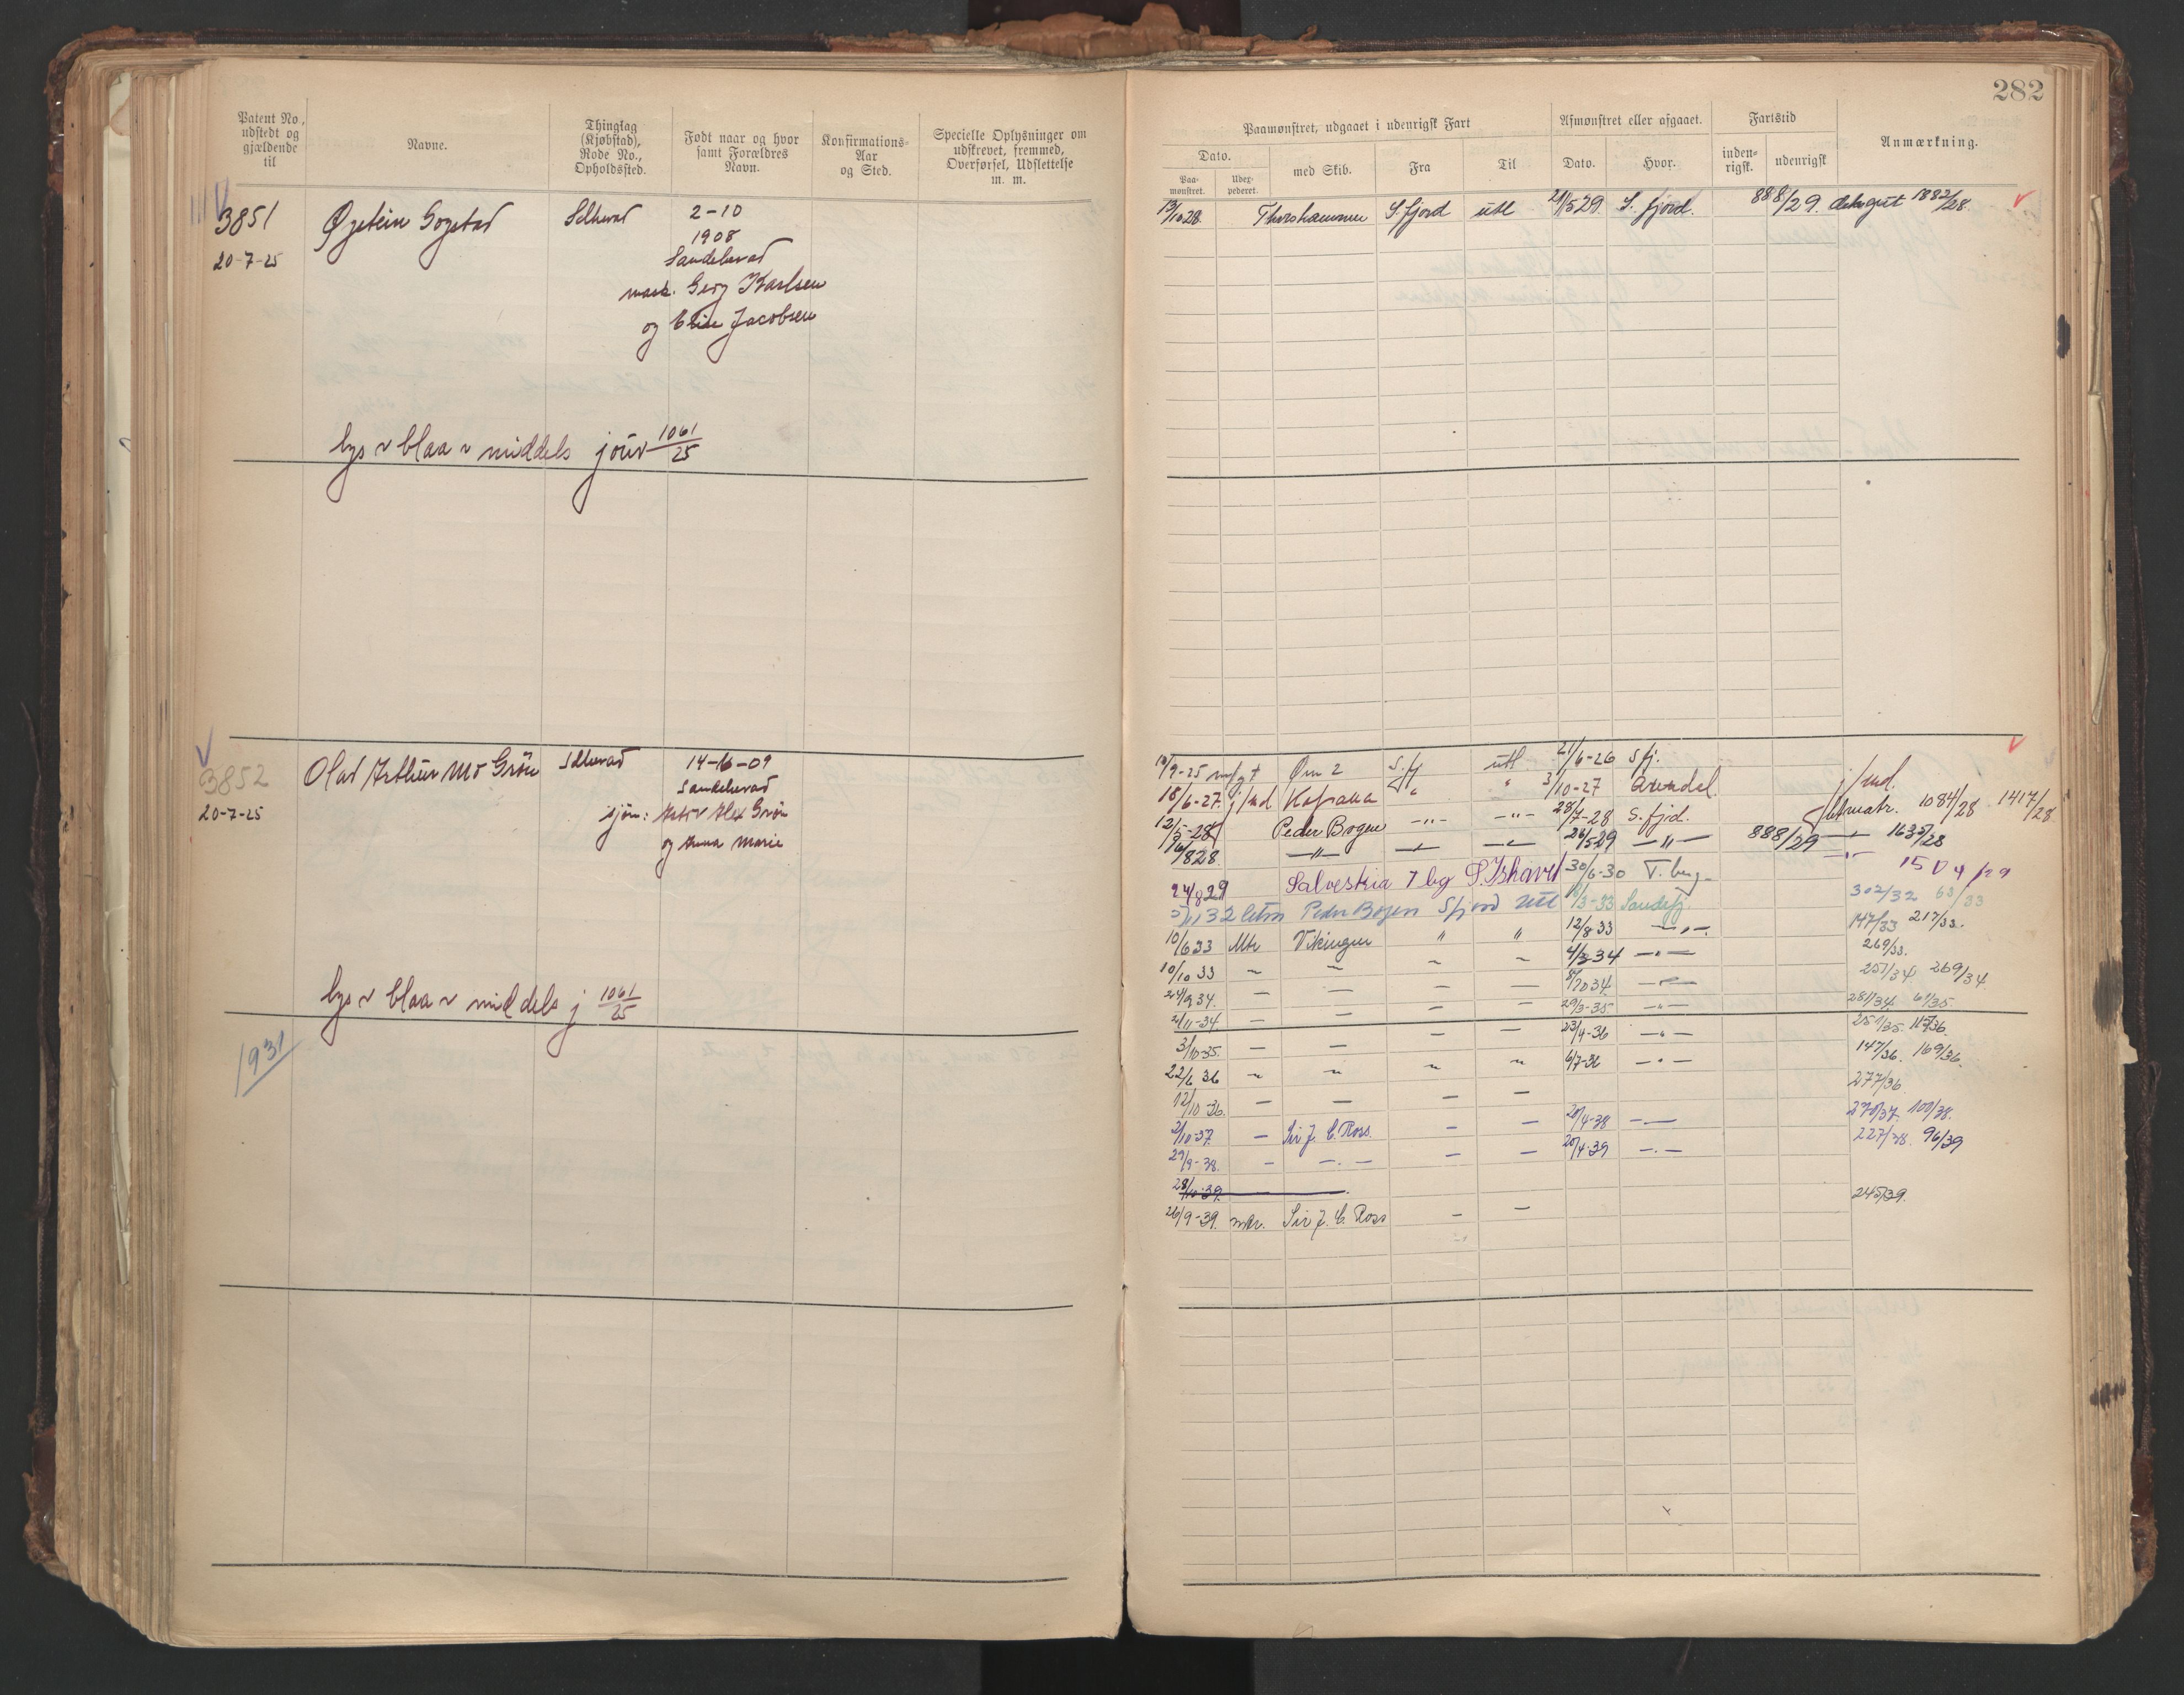 282
Patent No, udstedt og gjældende til
Navne.
Thinglag (Kjøbstad), Rode No., Opholdssted.
Født naar og hvor samt Forældres Navn.
Konfirmations-Aar og Sted.
Specielle Oplysninger om udskrevet, fremmed, Overførsel, Udslettelse m. m.
Paamønstret, udgaaet i udenrigsk Fart
Afmønstret eller afgaaet.
Fartstid
Anmærkning.
Dato.
med Skib.
Fra
Til
Dato.
Hvor.
inden-rigsk.
udenrigsk
Paa-mønstret.
Udex-pederet.
3851 Øystein Gogstad 2-10
20-7-25 1908
Georg Karlsen
og Jacobsen
lys v blaa v middels 1061/25
Thorshammer S. fjord utl 21/5 29 S. fjord. 888/29. 1882/28.
3852 Olaf Arthur Grön 14-6-09
20-7-25
sjøm: Alex Grön
og Anna Marie
lys v blaa v middels j 1061/25
1931
/9-25 Ørn 2 S. fj utl 21/6-26 S fj.
18/6-27 " " 3/10-27 Arendal.
12/5-28 Peder Bogen -"- -"- 28/7-28 S. fjd. 1084/28 1417/28
16/8 28 -"- 26/5 29 -"- 888/29 1635/28
24/8 29 T bg S. Ishavet 30/6-30 T. berg 1504/29
32 Peder Bogen Sfjord utl /3-33 Sandefj. 302/32 63/33
10/6 33 Mtr Vikingen " " 12/8 33 -"- 147/33 217/33.
10/10 33 4/3 34 -"- 269/33.
24/9 34. 257/34 269/34.
2/11-34. 29/3-35 -"- 281/34. 61/35
3/10-35. — — — — 23/4-36 -"- 251/35. 115/36.
22/6 36 6/7-36 -"- 147/36. 169/36.
12/10-36. — — — — 277/36.
2/10-37. — Sir J. C. Ross. — — 20/4-38 270/37. 100/38.
29/9-38. — — — — 20/4-39 227/38. 96/39
28/10-39.
26/9-39. mtr. Sir J. C. Ross — — 245/39.